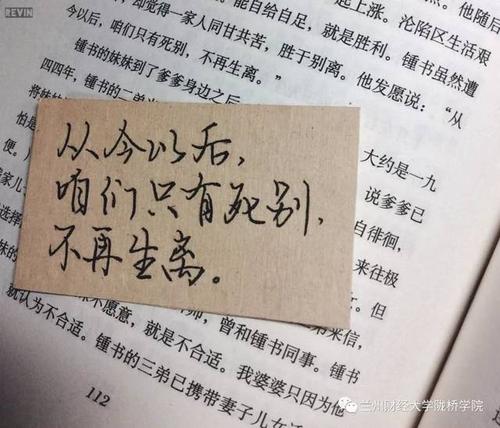 REVIN
却觉得一家人同甘共苦，胜于别离。
能自给自足，就是胜利。锺书虽然遭
起上涨。沦陷区生活艰
点。他随后
今以后，咱们只有死别，不再生离。”
他发愿说：“从
锺书的妹妹到了爹爹身边之后
大约是一九
四四年，锺书的二弟
说爹爹已
自徘徊，
来往极
但
来信，
不愿意，就是不合适。
曾和锺书同事。锺书
就认为不合适。
我婆婆只因为他
锺书的三弟已携带妻子儿女
112
从今以后，
咱们只有死别，
不再生离。
兰州财经大学陇桥学院